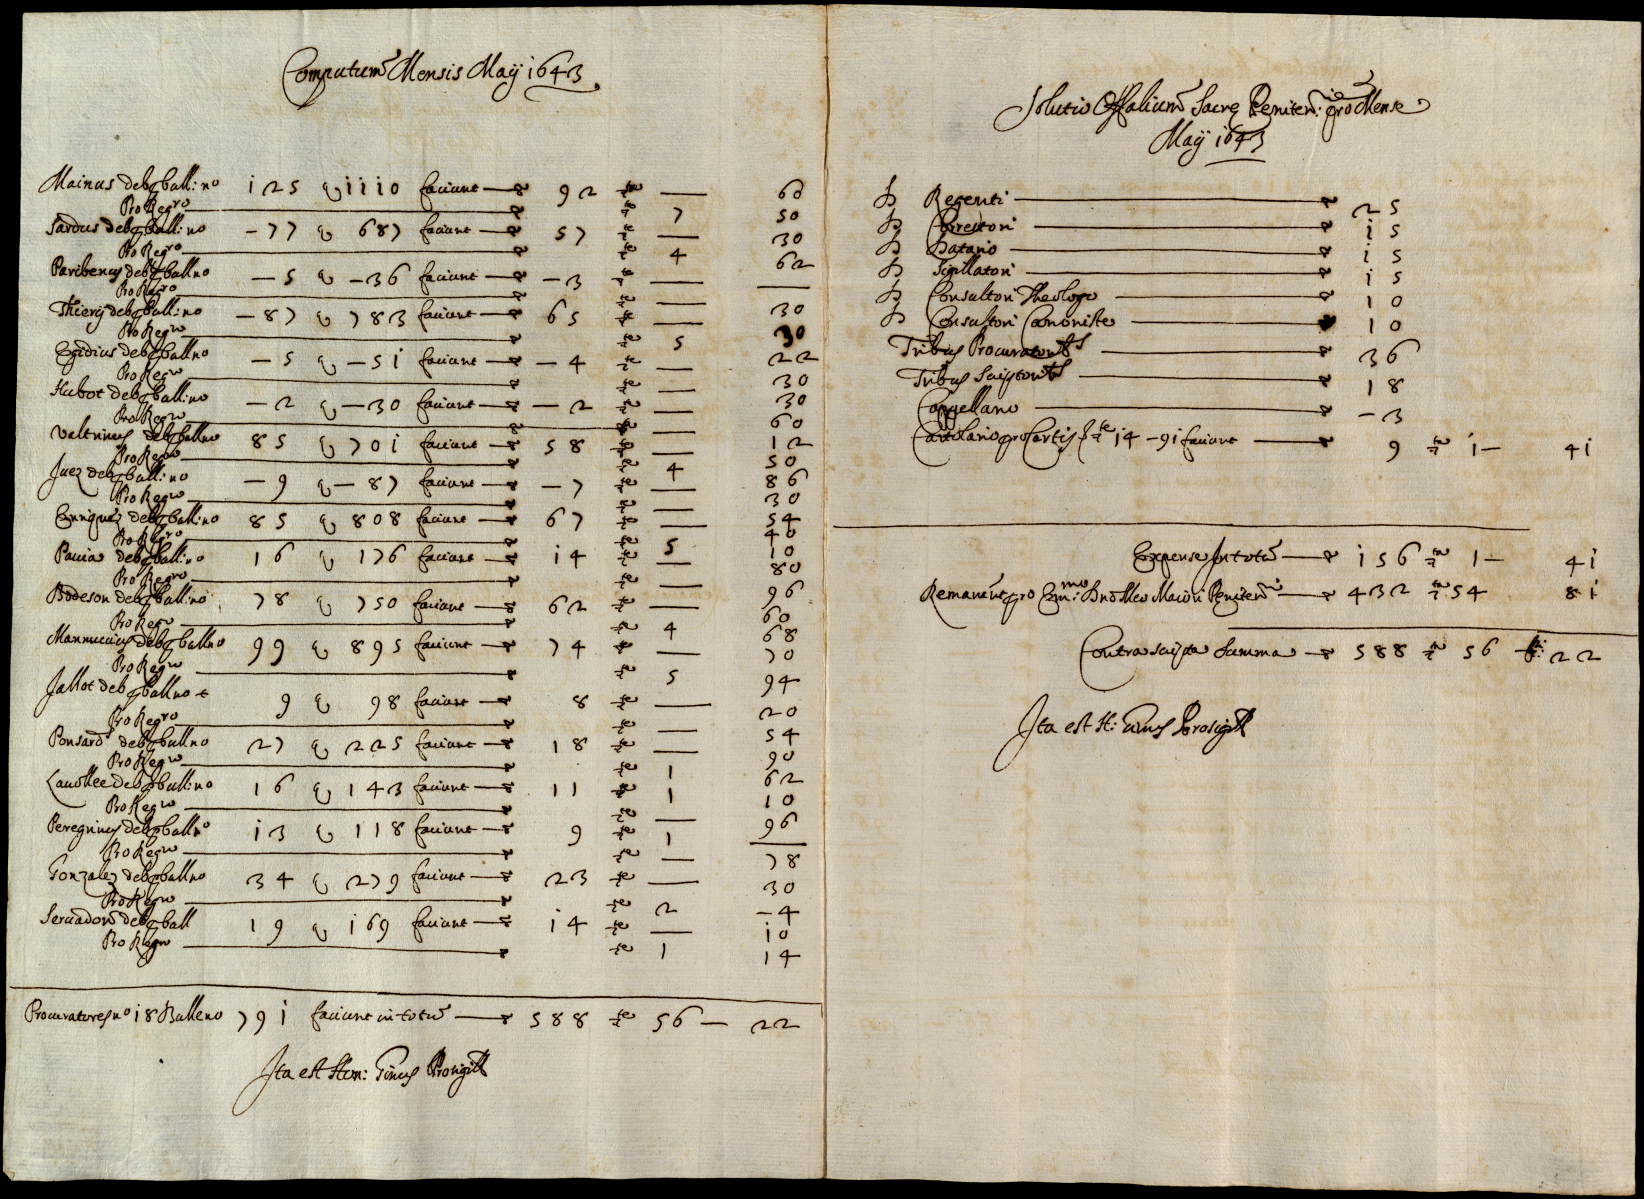 Computum Mensis Maij 1643
Mainus deb p ball: no 125 q 1110 faciunt 92 — 60
Pro Regro 7 50
Sardus deb p ball: no - 77 q 687 faciunt 57 — 30
Pro Regro 4 62
Paribenus deb p ball no - 5 q - 36 faciunt - 3 — —
Pro Regro — 30
Thierij deb p ball: no - 87 q 783 faciunt 65 — 30
Pro Regro 5 22
Egidius deb p ball no - 5 q - 51 faciunt - 4 — 30
Pro Regro — 30
Hubot deb p ball no - 2 q - 30 faciunt - 2 — 60
Pro Regro — 12
Valtrinus deb p ball no 85 q 701 faciunt 58 — 50
Pro Regro 4 86
Juez deb p ball: no - 9 q - 87 faciunt - 7 — 30
Pro Regro — 54
Enriquez deb p ball: no 85 q 808 faciunt 67 — 40
Pro Regro 5 10
Pauia deb p ball: no 16 q 176 faciunt 14 — 80
Pro Regro — 96
Bodeson deb p ball: no 78 q 750 faciunt 62 — 60
Pro Regro 4 68
Mannucius deb p ball no 99 q 895 faciunt 74 — 70
Pro Regro 5 94
Jallot deb p ball no 9 q 98 faciunt 8 — 20
Pro Regro — 54
Ponsard deb p ball no 27 q 225 faciunt 18 — 90
Pro Regro 1 62
Lauollee deb p ball: no 16 q 143 faciunt 11 1 10
Pro Regro — 96
Peregrinus deb p ball no 13 q 118 faciunt 9 1 —
Pro Regro — 78
Gonzalez deb p ball no 34 q 279 faciunt 23 — 30
Pro Regro 2 - 4
Seruadon deb p ball 19 q 169 faciunt 14 — 10
Pro Regro 1 14
Procuratores no 18 Balle no 791 faciunt in totu 588 56 — 22
Ita est Hon: Ginus Prosigill
Solutio Offitialium Sacre Peniten: pro Mense
Maij 1643
D Regenti 25
D Correttori 15
D Datario 15
D Sigillatori 15
D Consultori Theologo 10
D Consultori Canoniste 10
Tribus Procuratoribs 36
Tribus Scriptoribs 18
Cappellano - 3
Cartolario pro Cartis 14 - 91 faciunt 9 1 — 41
Expense In totu 156 1 — 41
Remanent pro Em:mo Dno Meo Maiori Peniten 432 54 81
Contrascripta Summa 588 56 22
Ita est H: Ginus Prosigill